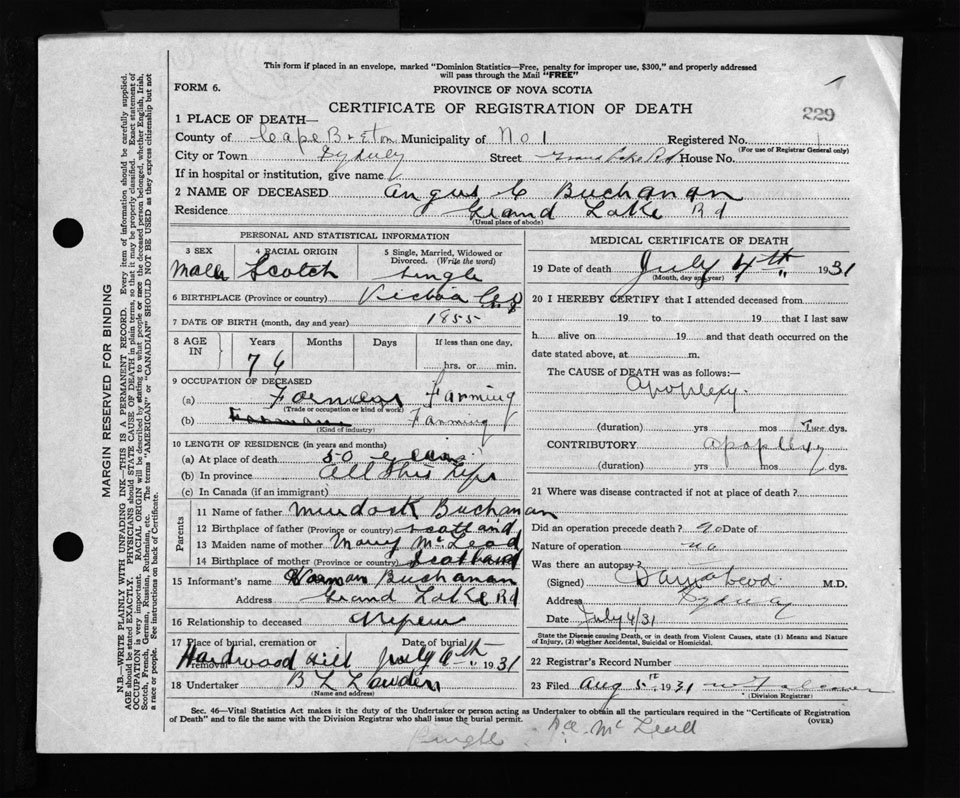 This form if placed in an envelope, marked "Dominion Statistics—Free, penalty for improper use, $300," and properly addressed
will pass through the Mail "FREE"
FORM 6.
PROVINCE OF NOVA SCOTIA
229
CERTIFICATE OF REGISTRATION OF DEATH
1 PLACE OF DEATH—
County of Cape Breton Municipality of No 1 Registered No.
(For use of Registrar General only)
City or Town Sydney Street Grand Lake Rd House No.
If in hospital or institution, give name
2 NAME OF DECEASED Angus C Buchanan
Residence Grand Lake Rd
(Usual place of abode)
PERSONAL AND STATISTICAL INFORMATION
3 SEX Male
4 RACIAL ORIGIN Scotch
5 Single, Married, Widowed or Divorced. (Write the word) Single
6 BIRTHPLACE (Province or country) Victoria Co
7 DATE OF BIRTH (month, day and year) 1855
8 AGE IN Years Months Days If less than one day,
76 hrs. or min.
9 OCCUPATION OF DECEASED
(a) Farming
(Trade or occupation or kind of work)
(b) Farming
(Kind of industry)
10 LENGTH OF RESIDENCE (in years and months)
(a) At place of death 50 years
(b) In province all this life
(c) In Canada (if an immigrant)
Parents
11 Name of father Murdock Buchanan
12 Birthplace of father (Province or country) Scotland
13 Maiden name of mother Mary McLeod
14 Birthplace of mother (Province or country) Scotland
15 Informant's name Norman Buchanan
Address Grand Lake Rd
16 Relationship to deceased Nephew
17 Place of burial, cremation or removal Hardwood Hill Date of burial July 6th 1931
18 Undertaker B L
(Name and address)
MEDICAL CERTIFICATE OF DEATH
19 Date of death July 4th 1931
(Month, day and year)
20 I HEREBY CERTIFY that I attended deceased from
19 to 19 that I last saw
h alive on 19 and that death occurred on the
date stated above, at m.
The CAUSE of DEATH was as follows:
Apoplexy
(duration) yrs mos dys.
CONTRIBUTORY apoplexy
(duration) yrs mos dys.
21 Where was disease contracted if not at place of death?
Did an operation precede death? no Date of
Nature of operation no
Was there an autopsy?
(Signed) M.D.
Address Sydney
Date July 4/31
State the Disease causing Death, or in death from Violent Causes, state (1) Means and Nature
of Injury, (2) whether Accidental, Suicidal or Homicidal.
22 Registrar's Record Number
23 Filed Aug 5 1931
(Division Registrar)
Sec. 46—Vital Statistics Act makes it the duty of the Undertaker or person acting as Undertaker to obtain all the particulars required in the "Certificate of Registration
of Death" and to file the same with the Division Registrar who shall issue the burial permit.
(OVER)
Single
McLeod
MARGIN RESERVED FOR BINDING
N.B.—WRITE PLAINLY WITH UNFADING INK—THIS IS A PERMANENT RECORD. Every item of information should be carefully supplied.
AGE should be stated EXACTLY. PHYSICIANS should STATE CAUSE OF DEATH in plain terms, so that it may be properly classified. Exact statement of
OCCUPATION is very important. RACIAL ORIGIN will be described by stating to what people or race the deceased person belonged, whether English, Irish,
Scotch, French, German, Russian, Ruthenian, etc. The terms "AMERICAN" or "CANADIAN" SHOULD NOT BE USED as they express citizenship but not
a race or people. See instructions on back of Certificate.